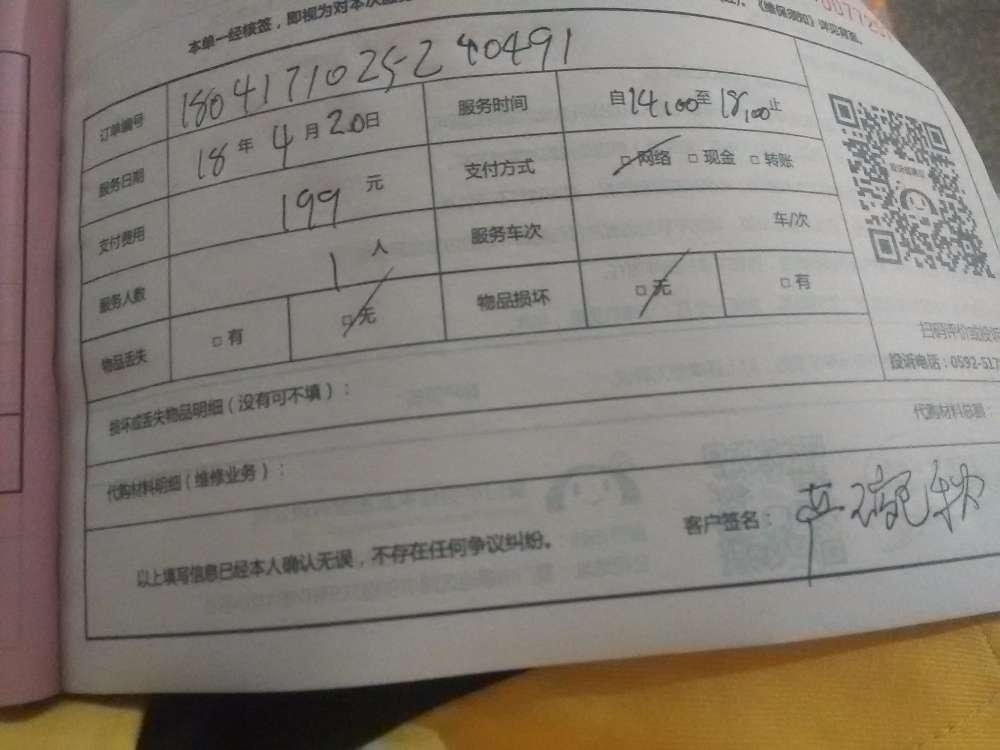 本单一经核签，即视为对本次服务
《维保须知》详见背面。
订单编号 1804171025240491
服务日期 18年4月20日 服务时间 自14:00至18:00止
支付费用 199元 支付方式 □网络 □现金 □转账
服务人数 1人 服务车次 车/次
物品丢失 □有 □无 物品损坏 □无 □有
扫码评价或投诉
投诉电话：0592-517
损坏或丢失物品明细（没有可不填）：
代购材料明细（维修业务）： 代购材料总额：
以上填写信息已经本人确认无误，不存在任何争议纠纷。 客户签名：